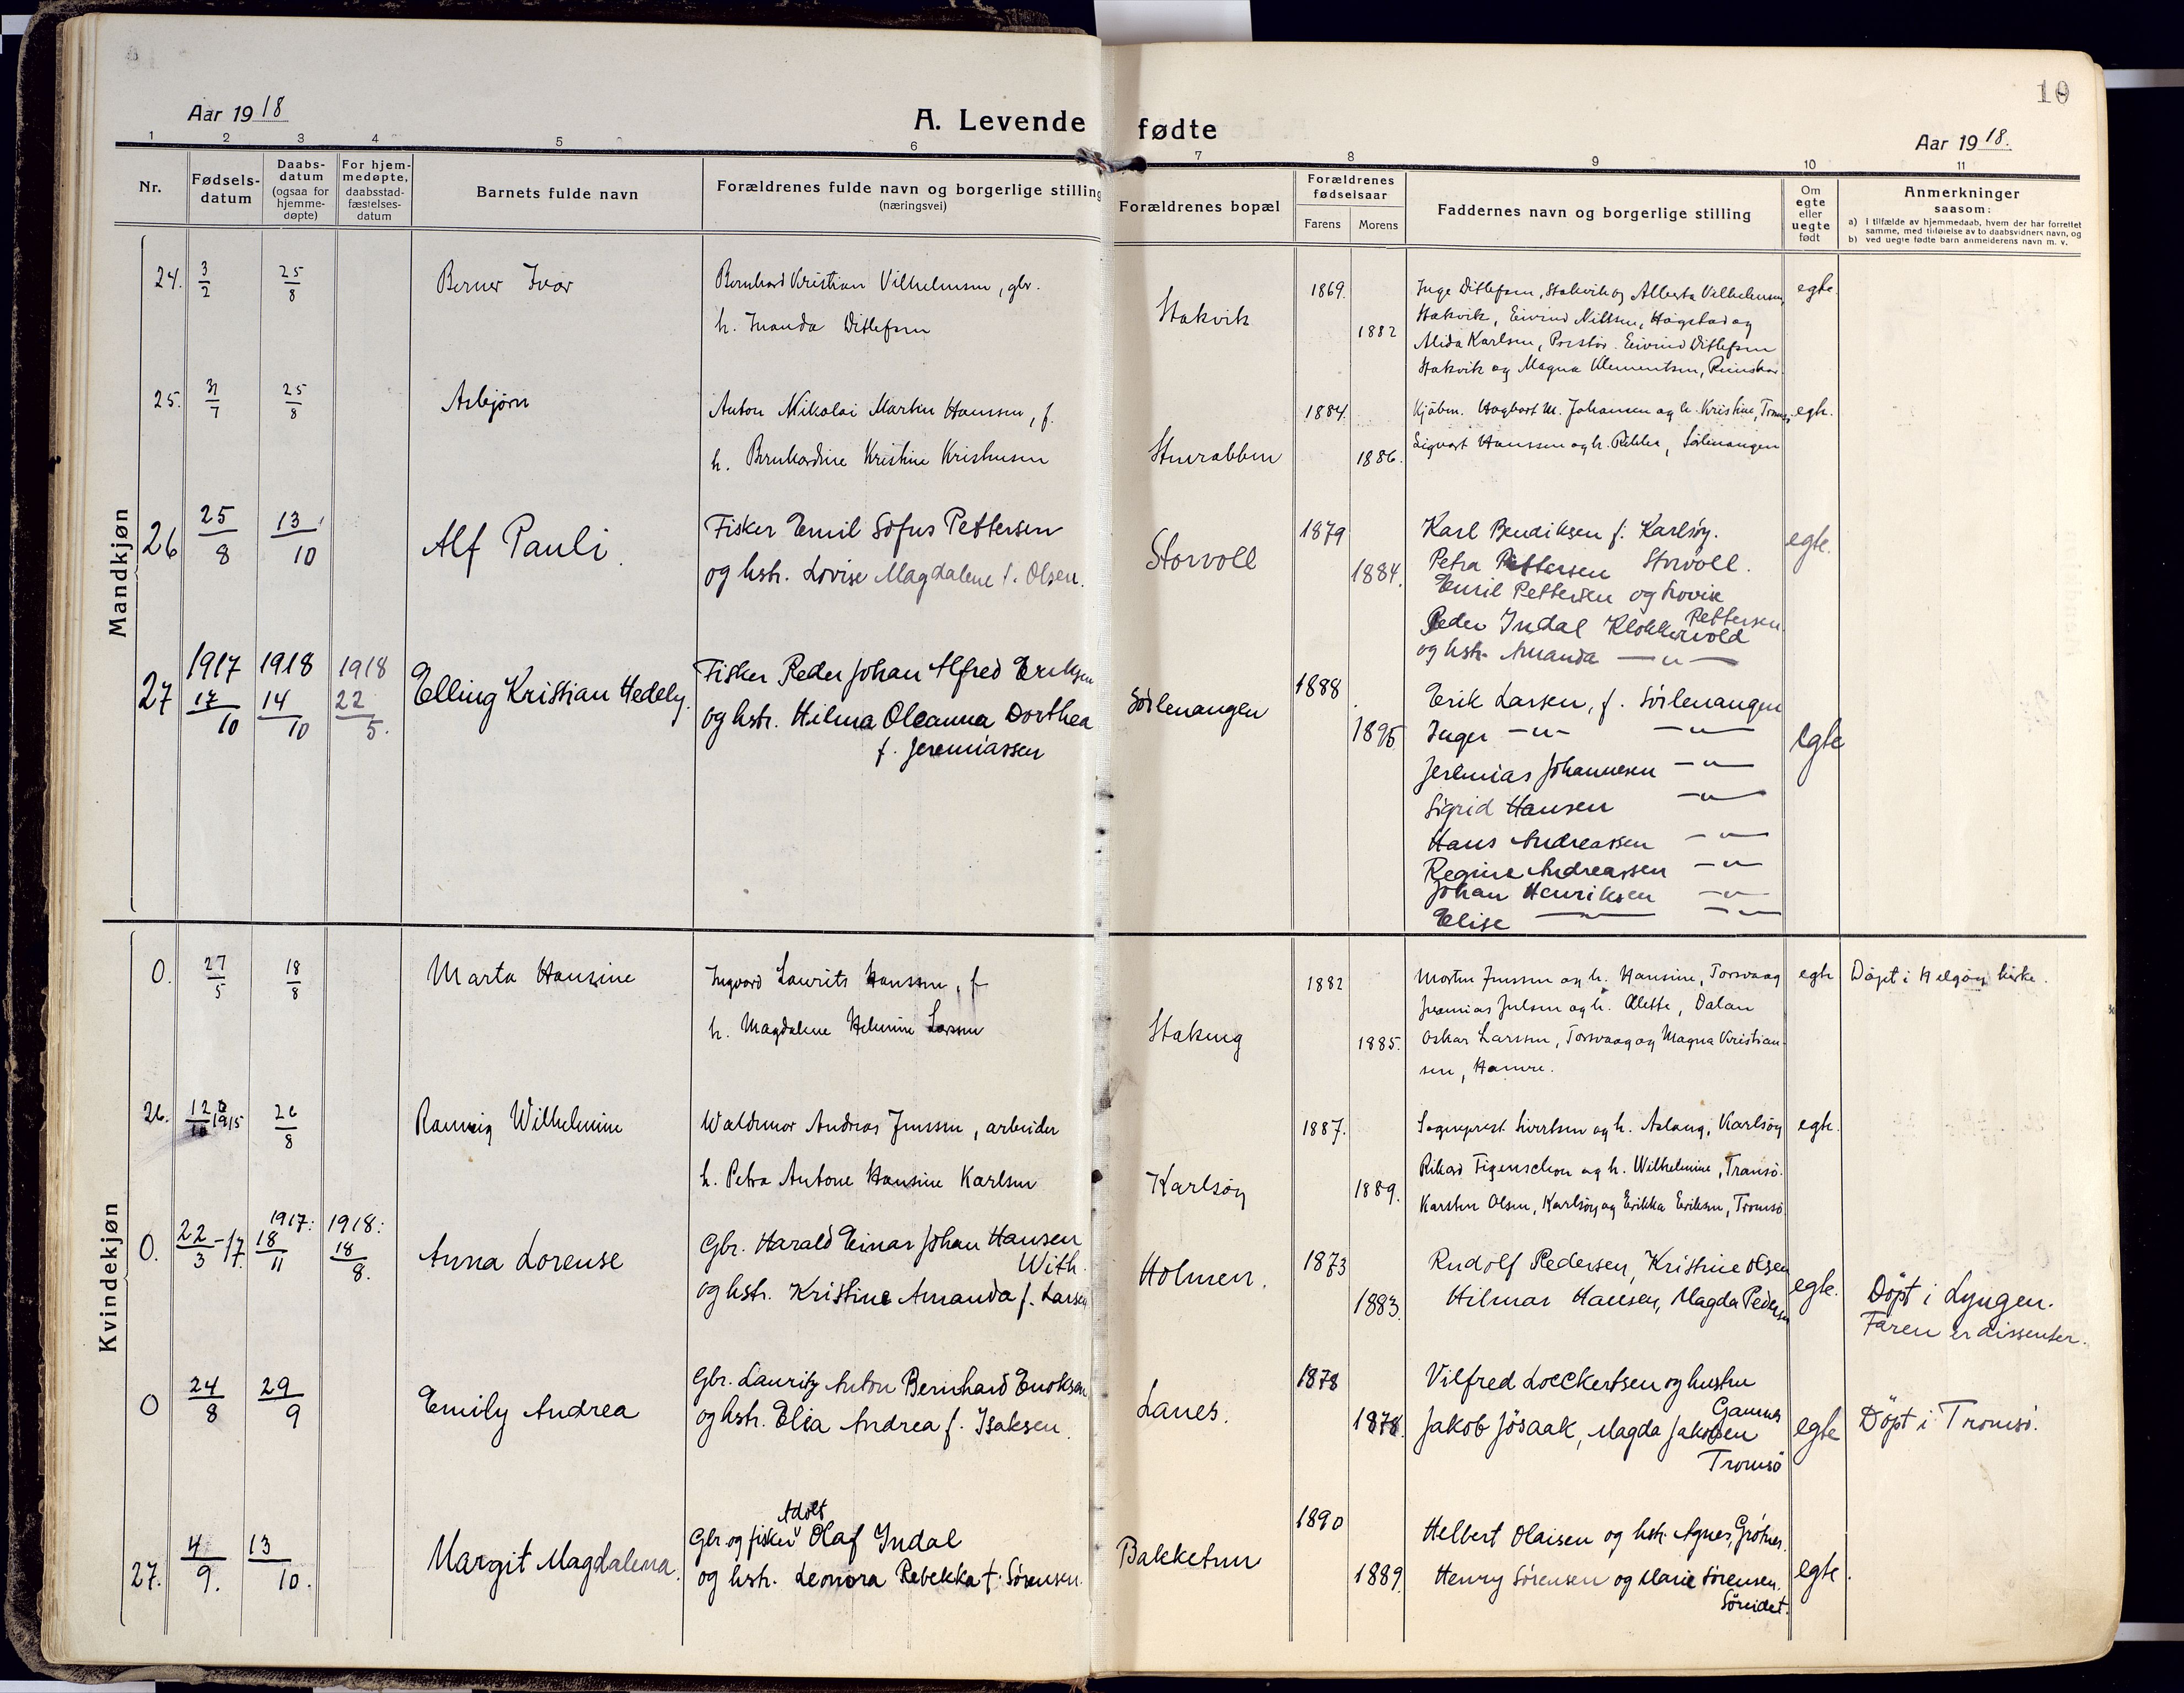 10
Aar 1918
A. Levende fødte
Aar 1918.
1 2 3 4 5 6 7 8 9 10 11
Nr.
Fødsels-
datum
Daabs-
datum
(ogsaa for
hjemme-
døpte)
For hjem-
medøpte,
daabsstad-
fæstelses-
datum
Barnets fulde navn
Forældrenes fulde navn og borgerlige stilling
(næringsvei)
Forældrenes bopæl
Forældrenes
fødselsaar
Farens Morens
Faddernes navn og borgerlige stilling
Om
egte
eller
uegte
født
Anmerkninger
saasom:
a) i tilfælde av hjemmedaab, hvem der har forrettet
samme, med tilføielse av to daabsvidners navn, og
b) ved uegte fødte barn anmelderens navn m. v.
Mandkjøn
24. 3/2 25/8 Berner Ivar
Bernhard Kristian Vilhelmsen, gbr.
h. Ditlefsen
Stakvik
1869.
1882
Inge Ditlefsen, Stakvik og Alberta Vilhelmsen,
Stakvik, Eivind Nilssen, Hagstad og
Alida Karlsen, Eivind Ditlefsen
Stakvik og Magna Klementsen,
egte.
25. 31/7 25/8 Asbjørn
Anton Nikolai Martin Hanssen, f.
h. Bernhardine Kristine Kristensen
1884.
1886.
Kjøbm. Hagbart M. Johansen og h. Kristine, Tromsø
Sigvart Hanssen og h. Rikka, Sørlenangen
egte.
26 25/8 13/10 Alf Pauli.
Fisker Emil Sofus Pettersen
og hstr. Lovise Magdalene f. Olsen.
Storvoll
1879
1884.
Karl Bendiksen f. Karlsøy.
Petra Pettersen Storvoll.
Emil Pettersen og Lovise
Pettersen.
Peder Indal Klokkervold
og hstr. Amanda — " —
egte.
27 1917 17/10 1918 14/10 1918 22/5. Elling Kristian Hedely.
Fisker Peder Johan Alfred Eriksen
og hstr. Hilma Oleanna Dorthea
f. Jeremiassen
Sørlenangen
1888
1895
Erik Larsen, f. Sørlenangen
Inger — " — — " —
Jeremias Johannesen — " —
Sigrid Hansen — " —
Hans Andreassen — " —
Regine Andreassen — " —
Johan Henriksen — " —
Elise — " — — " —
egte
Kvindekjøn
0. 27/5 18/8 Marta Hansine
Ingvard Laurits Hanssen, f
h. Magdalene Helmine Larssen
Stakeng
1882
1885.
Morten Jenssen og h. Hansine, Torsvaag
Jeremias Julsen og h. Alette, Dalan
Oskar Larssen, Torsvaag og Magna Kristian-
sen, Hamre.
egte
Døpt i Helgøy kirke.
26. 12/10 1915 26/8 Ranveig Wilhelmine
Waldemar Andreas Jenssen, arbeider
h. Petra Antone Hansine Karlsen
Karlsøy
1887.
1889.
Sogneprest Sivertsen og h. Aslaug, Karlsøy
Rikard Figenschou og h. Wilhelmine, Tromsø.
Karsten Olsen, Karlsøy og Erikka Eriksen, Tromsø
egte.
0. 22/3 -17. 1917: 18/11 1918: 18/8. Anna Lorense
Gbr. Harald Einar Johan Hansen
With.
og hstr. Kristine Amanda f. Larsen
Holmen.
1873
1883.
Rudolf Pedersen, Kristine Olsen
Hilmar Hansen, Magda Pedersen
egte.
Döpt i Lyngen.
Faren er dissenter.
0 24/8 29/9 Emily Andrea
Gbr. Lauritz Anton Bernhard Enoksen
og hstr. Elia Andrea f. Isaksen.
Lanes.
1878
1878.
Vilfred Loeckertsen og hustru
Gamnes
Jakob Jösaak, Magda Jakobsen
Tromsö
egte
Döpt i Tromsö.
27. 4/9. 13/10. Margit Magdalena.
Adolf
Gbr. og fisker Olaf Indal
og hstr. Leonora Rebekka f. Sörensen.
Bakketun
1890
1889.
Helbert Olaisen og hstr. Agnes, Grötnes.
Henry Sörensen og Marie Sörensen.
Söreidet.
egte.